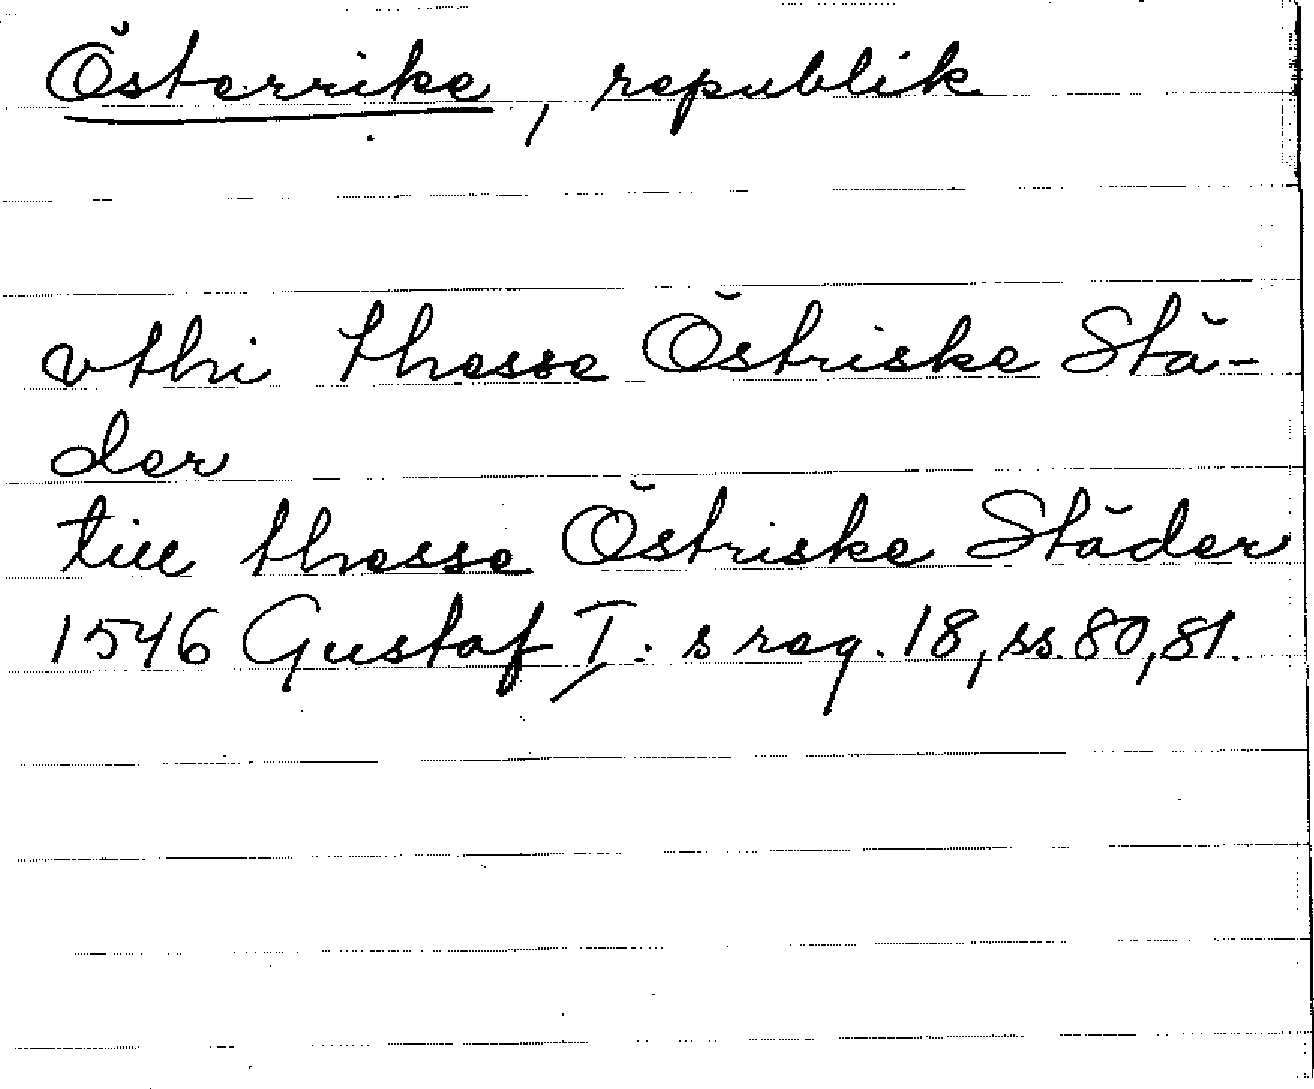 Österrike, republik
vthi thesse Östriske Stä-
der
till thesse Östriske Städer
1546 Gustaf I:s reg. 18, ss. 80, 81.